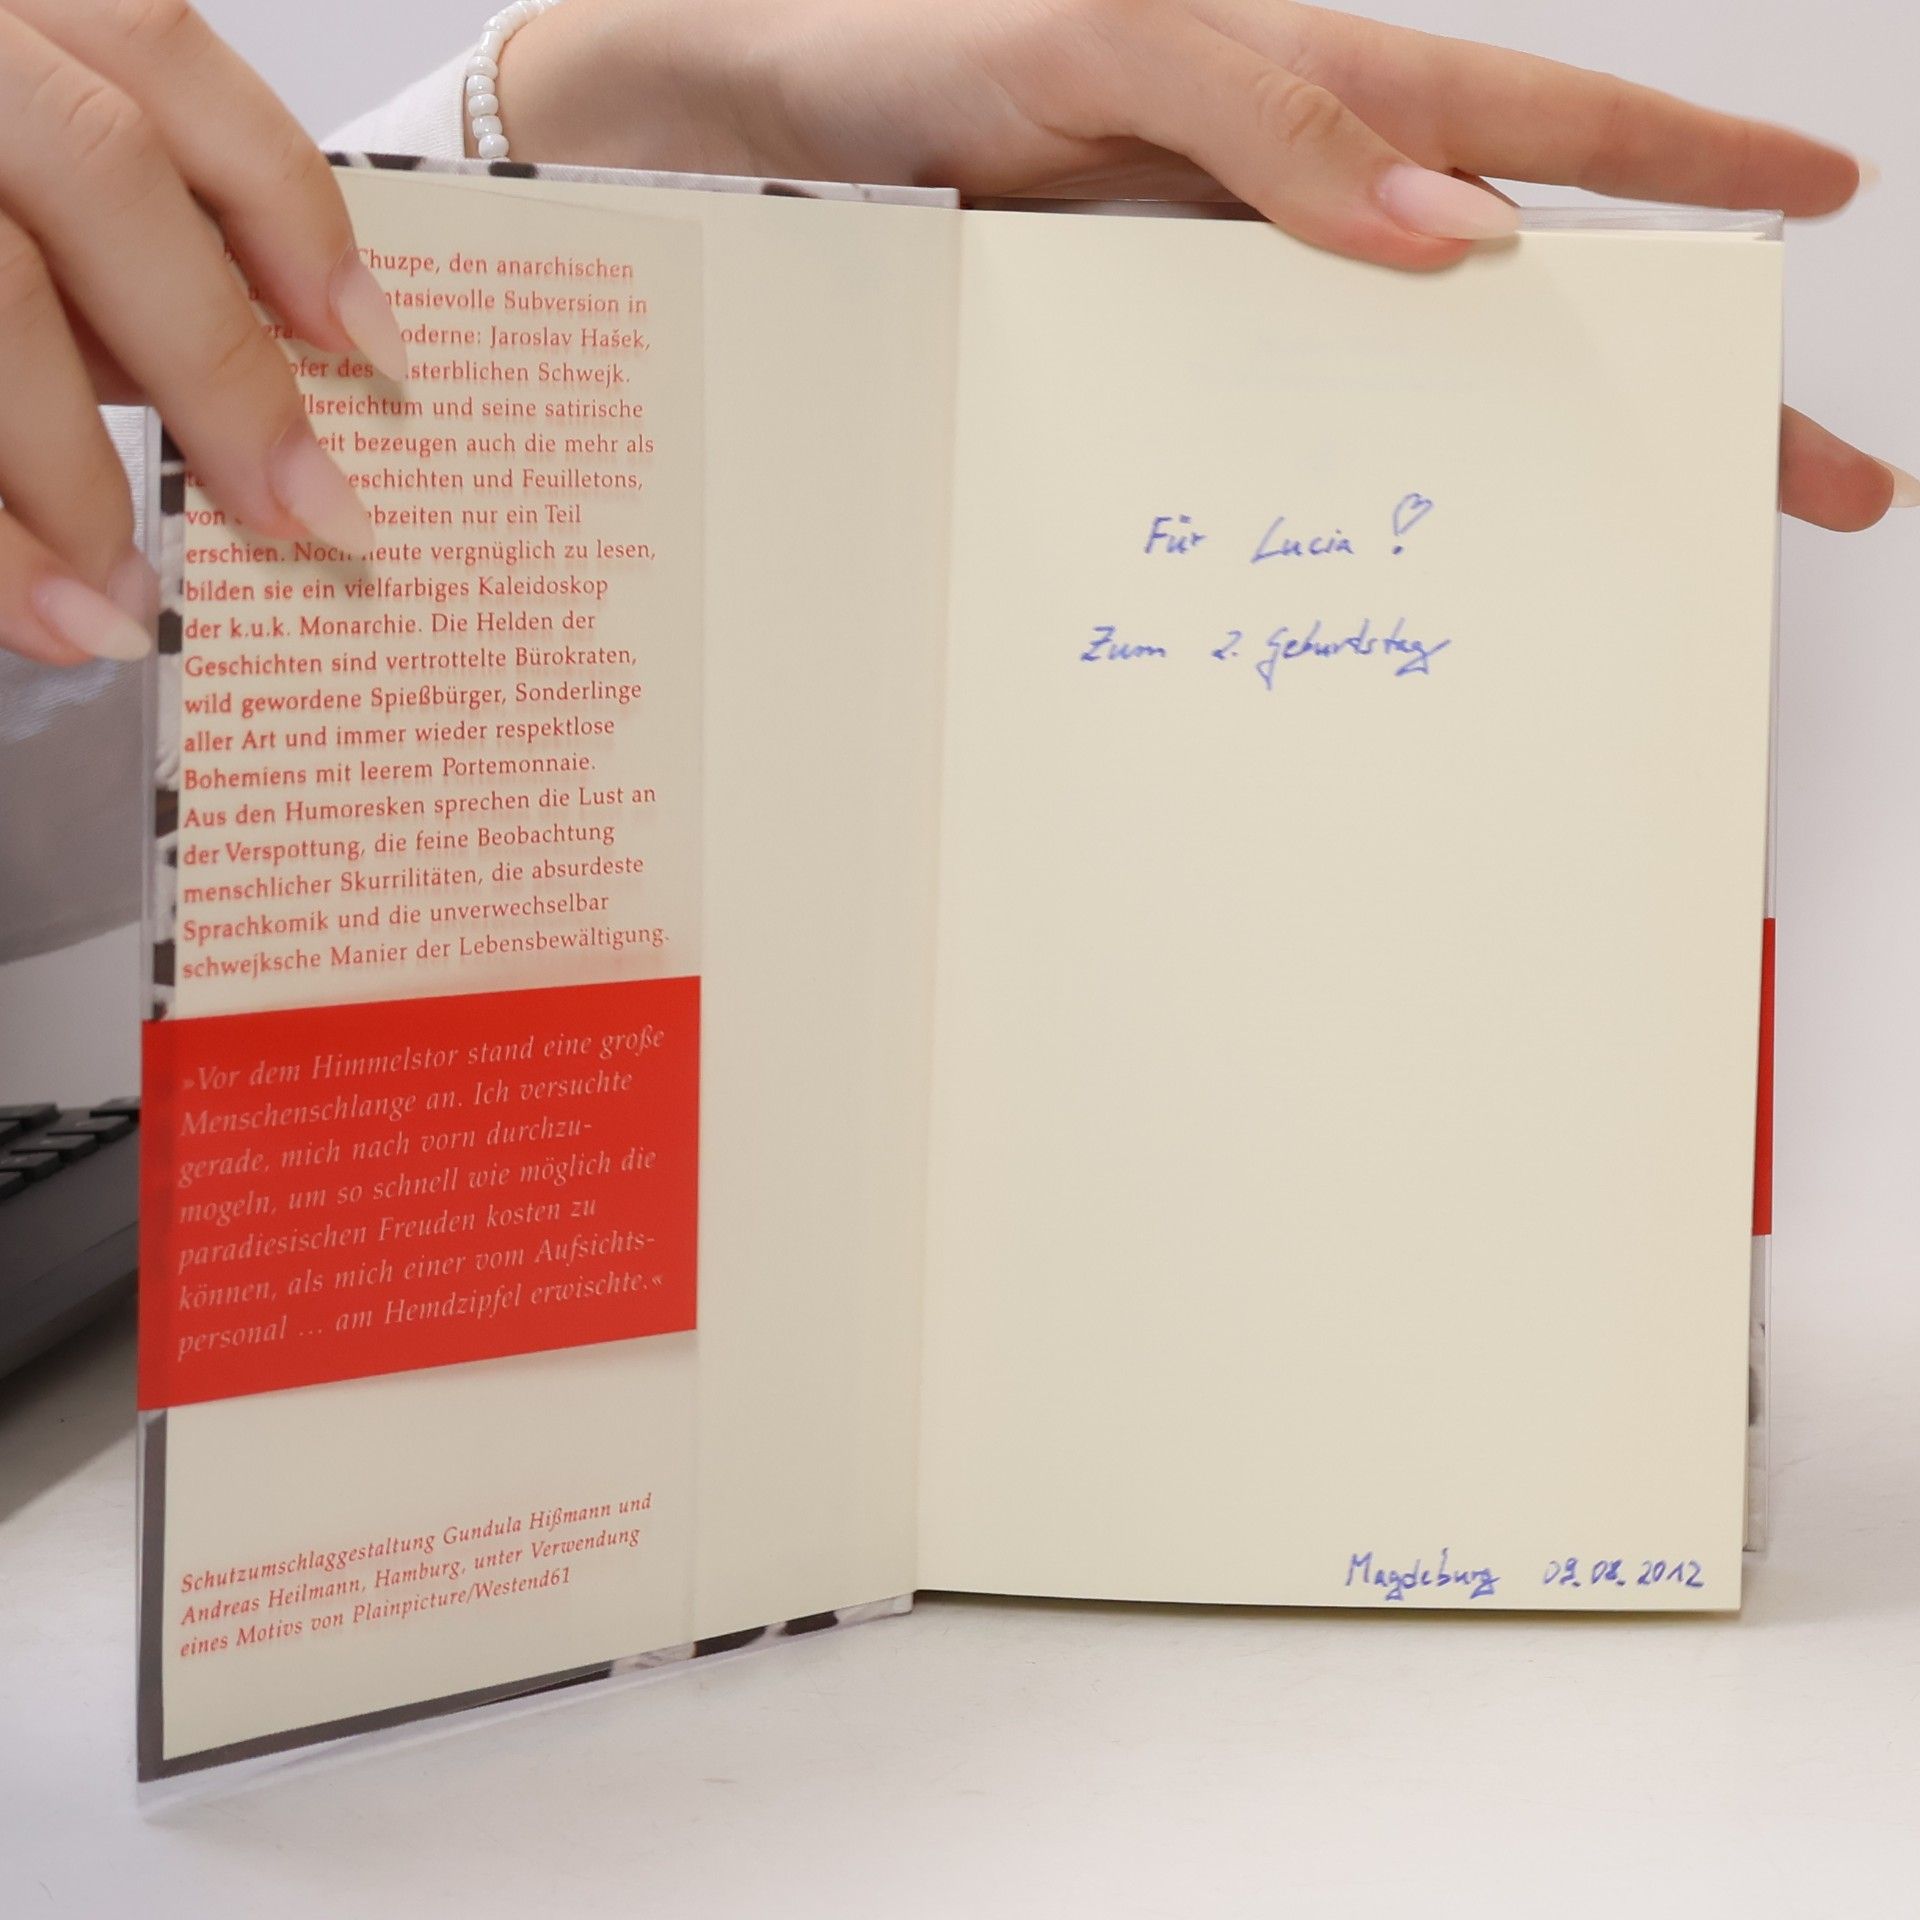 Chuzpe, den anarchischen
Subversion in
Jaroslav Hašek,
des Schwejk.
und seine satirische
bezeugen auch die mehr als
und Feuilletons,
von nur ein Teil
erschien. Noch heute vergnüglich zu lesen,
bilden sie ein vielfarbiges Kaleidoskop
der k.u.k. Monarchie. Die Helden der
Geschichten sind vertrottelte Bürokraten,
wild gewordene Spießbürger, Sonderlinge
aller Art und immer wieder respektlose
Bohemiens mit leerem Portemonnaie.
Aus den Humoresken sprechen die Lust an
der Verspottung, die feine Beobachtung
menschlicher Skurrilitäten, die absurdeste
Sprachkomik und die unverwechselbar
schwejksche Manier der Lebensbewältigung.
»Vor dem Himmelstor stand eine große
Menschenschlange an. Ich versuchte
gerade, mich nach vorn durchzu-
mogeln, um so schnell wie möglich die
paradiesischen Freuden kosten zu
können, als mich einer vom Aufsichts-
personal ... am Hemdzipfel erwischte.«
Schutzumschlaggestaltung Gundula Hißmann und
Andreas Heilmann, Hamburg, unter Verwendung
eines Motivs von Plainpicture/Westend61
Für Lucia!
Zum 2. Geburtstag
Magdeburg 09.08.2012